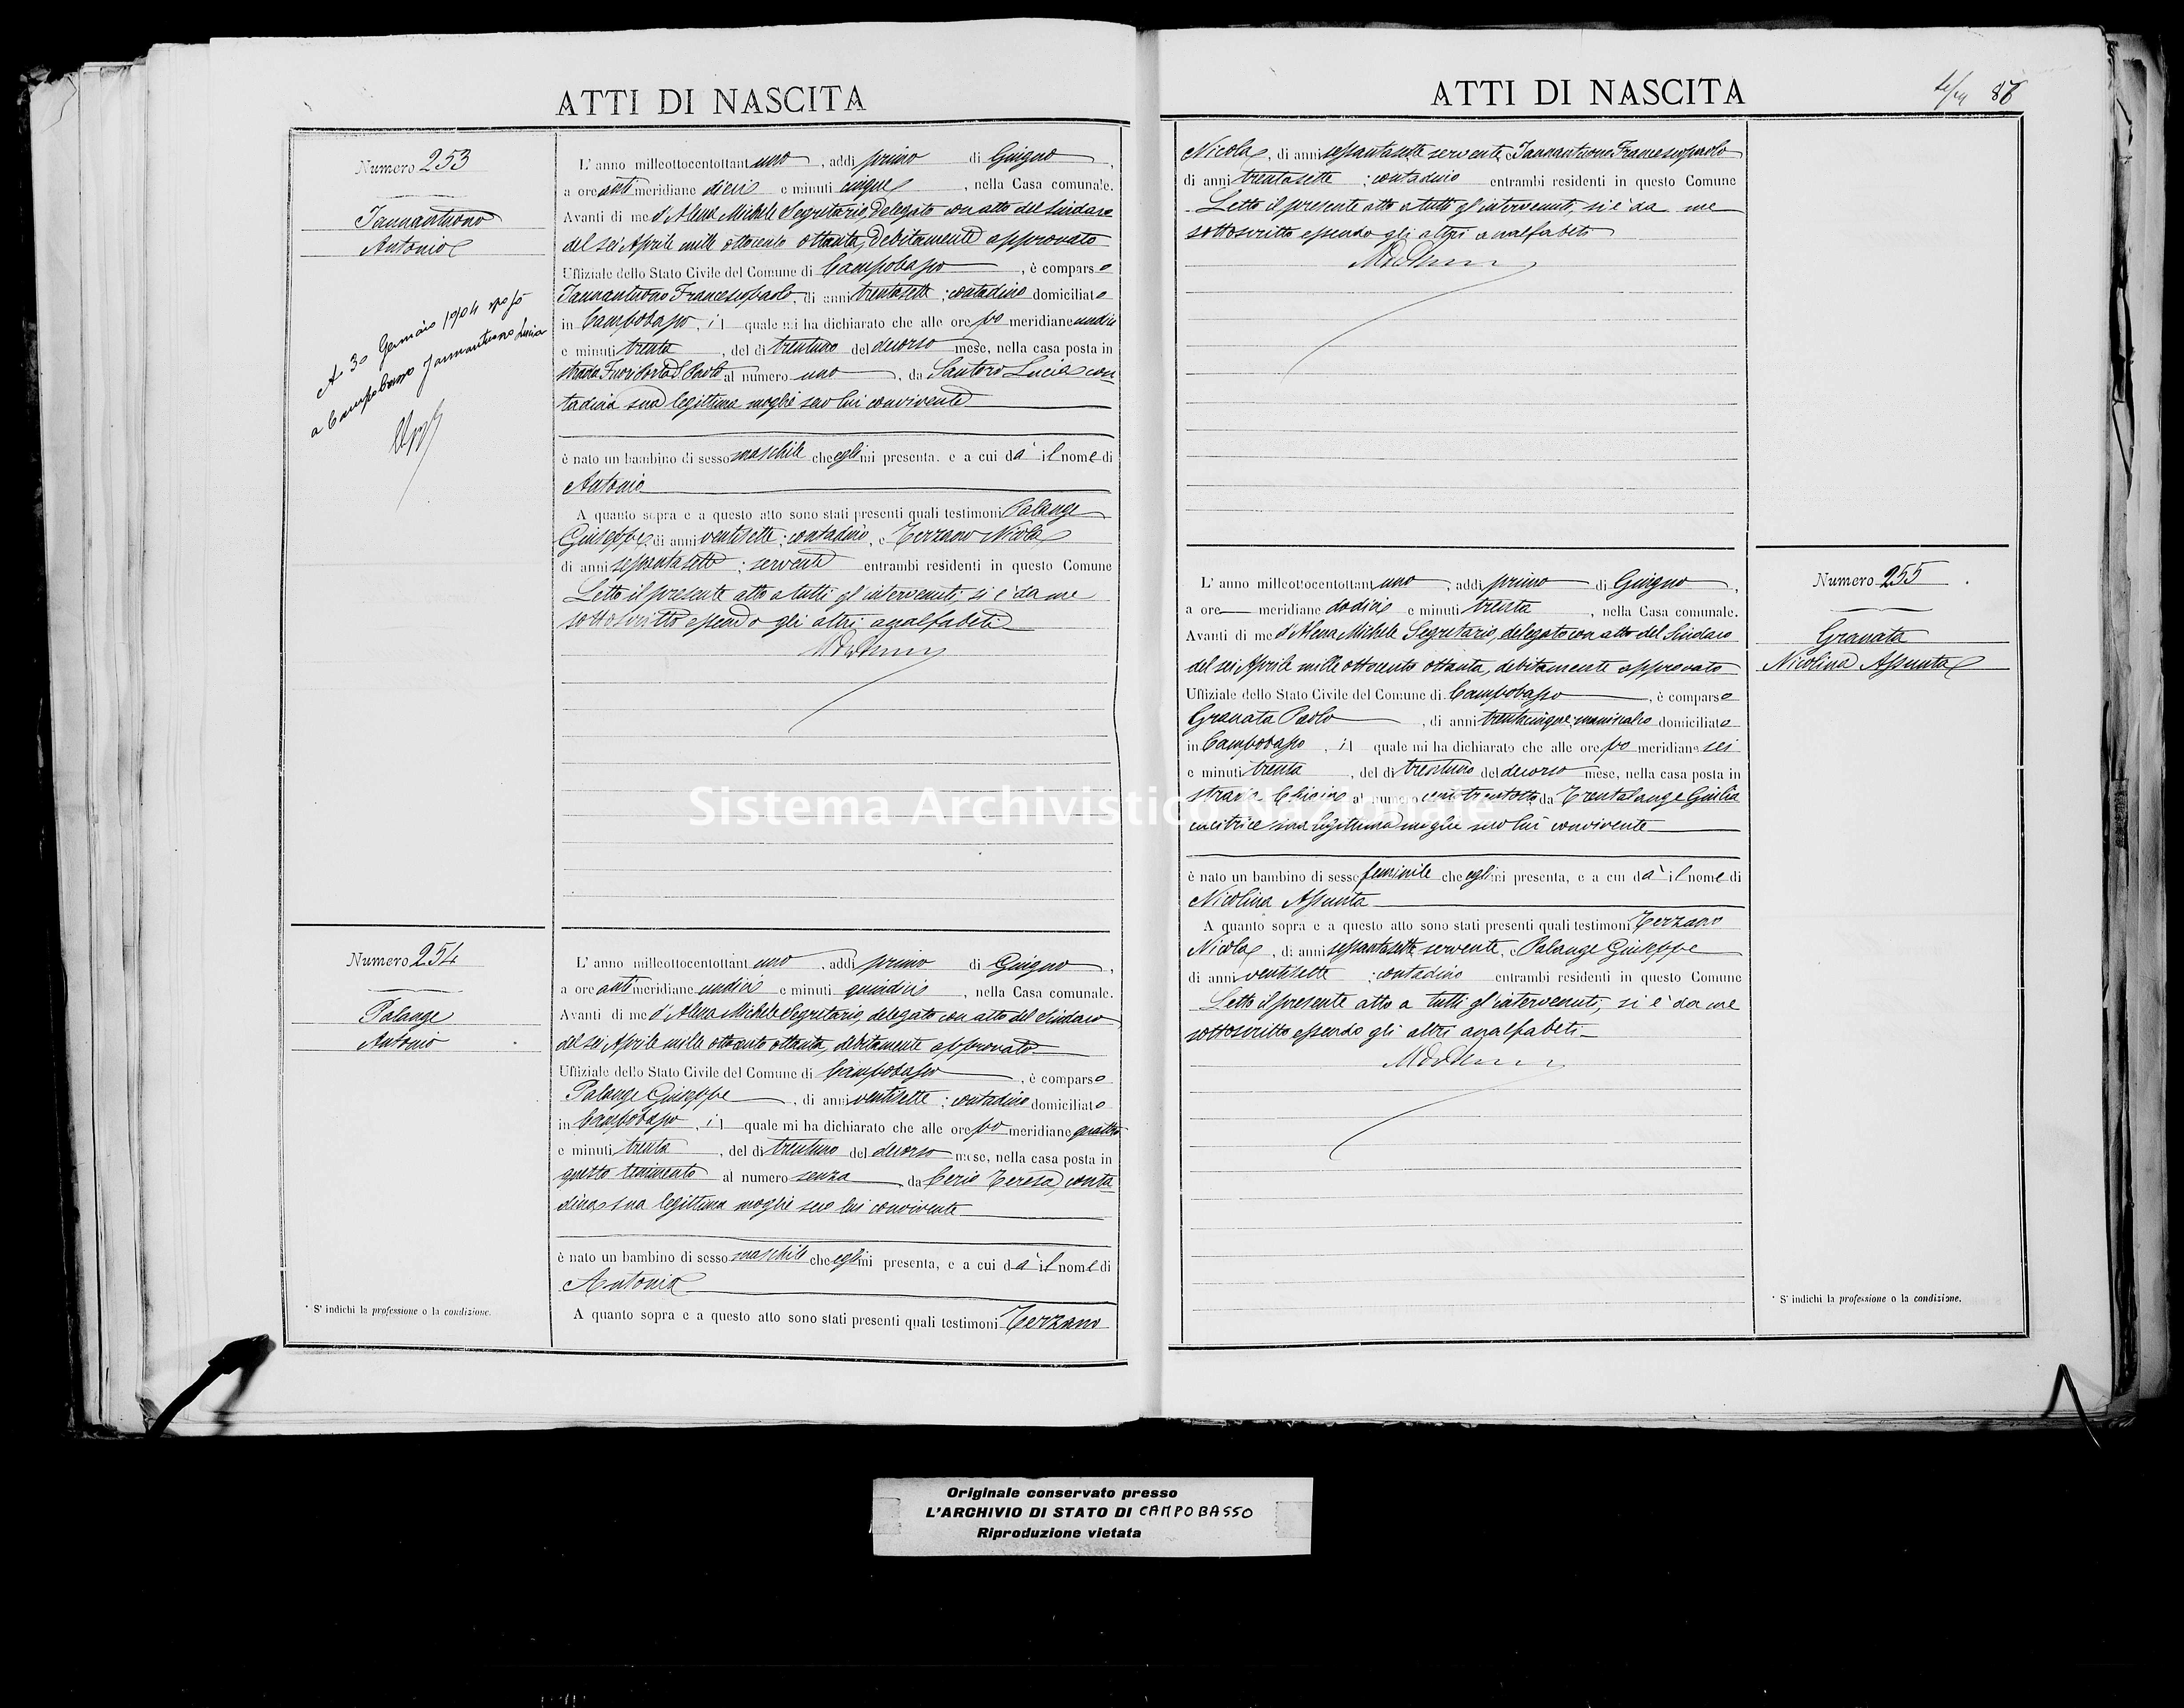 ATTI DI NASCITA
Numero 253
Iannantuono
Antonio
A 30 Gennaio 1904 sposò
a Campobasso Iannantuono Lucia
L' anno milleottocentottant uno, addì primo di Giugno,
a ore anti meridiane dieci e minuti cinque, nella Casa comunale.
Avanti di me d'Alena Michele Segretario, Delegato con atto del Sindaco
del sei Aprile mille ottocento ottanta, Debitamente approvato
Uffiziale dello Stato Civile del Comune di Campobasso, è comparso
Iannantuono Francescopaolo, di anni trentasette; contadino domiciliato
in Campobasso, il quale mi ha dichiarato che alle ore po meridiane undici
e minuti trenta, del dì trentuno del decorso mese, nella casa posta in
strada Fuori Porta S. Paolo al numero uno, da Santoro Lucia con
tadina sua legittima moglie seco lui convivente
è nato un bambino di sesso maschile che egli mi presenta, e a cui dà il nome di
Antonio
A quanto sopra e a questo atto sono stati presenti quali testimoni Palange
Giuseppe, di anni ventisette; contadino, e Terzano Nicola
di anni sessantasette; servente entrambi residenti in questo Comune
Letto il presente atto a tutti gl'intervenuti, si è da me
sottoscritto essendo gli altri analfabeti
Numero 254
Palange
Antonio
L' anno milleottocentottant uno, addì primo di Giugno,
a ore anti meridiane undici e minuti quindici, nella Casa comunale.
Avanti di me d'Alena Michele Segretario, delegato con atto del Sindaco
del sei Aprile mille ottocento ottanta, debitamente approvato
Uffiziale dello Stato Civile del Comune di Campobasso, è comparso
Palange Giuseppe, di anni ventisette; contadino domiciliato
in Campobasso, il quale mi ha dichiarato che alle ore po meridiane quattro
e minuti trenta, del dì trentuno del decorso mese, nella casa posta in
questo tenimento al numero senza da Cerio Teresa, conta
dina sua legittima moglie seco lui convivente
è nato un bambino di sesso maschile che egli mi presenta, e a cui dà il nome di
Antonio
A quanto sopra e a questo atto sono stati presenti quali testimoni Terzano
* S' indichi la professione o la condizione.
ATTI DI NASCITA
Nicola, di anni sessantasette servente, e Iannantuono Francescopaolo
di anni trentasette; contadino entrambi residenti in questo Comune
Letto il presente atto a tutti gl'intervenuti, si è da me
sottoscritto essendo gli altri analfabeti
L' anno milleottocentottant uno, addì primo di Giugno,
a ore meridiane dodici e minuti trenta, nella Casa comunale.
Avanti di me d'Alena Michele Segretario, delegato con atto del Sindaco
del sei Aprile mille ottocento ottanta, debitamente approvato
Uffiziale dello Stato Civile del Comune di Campobasso, è comparso
Granata Paolo, di anni trentacinque; domiciliato
in Campobasso, il quale mi ha dichiarato che alle ore po meridiane sei
e minuti trenta, del dì trentuno del decorso mese, nella casa posta in
strada al numero centotrentotto, da Trentalange Giulia
cucitrice sua legittima moglie seco lui convivente
è nato un bambino di sesso feminile che egli mi presenta, e a cui dà il nome di
Nicolina Assunta
A quanto sopra e a questo atto sono stati presenti quali testimoni Terzano
Nicola, di anni sessantasette servente, e Palange Giuseppe
di anni ventisette; contadino entrambi residenti in questo Comune
Letto il presente atto a tutti gl'intervenuti, si è da me
sottoscritto essendo gli altri analfabeti
Numero 255
Granata
Nicolina Assunta
* S' indichi la professione o la condizione.
Sistema Archivistico Nazionale
Originale conservato presso
L'ARCHIVIO DI STATO DI CAMPOBASSO
Riproduzione vietata